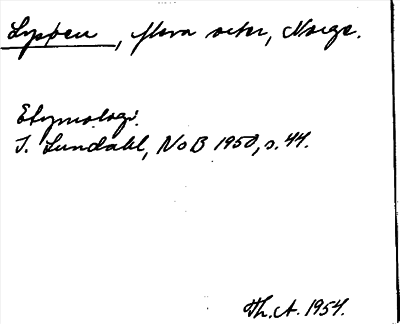 Lyppen, flera orter, Norge.
Etymologi.
I. Lundahl, NoB 1950, s. 44.
Th. A. 1954.